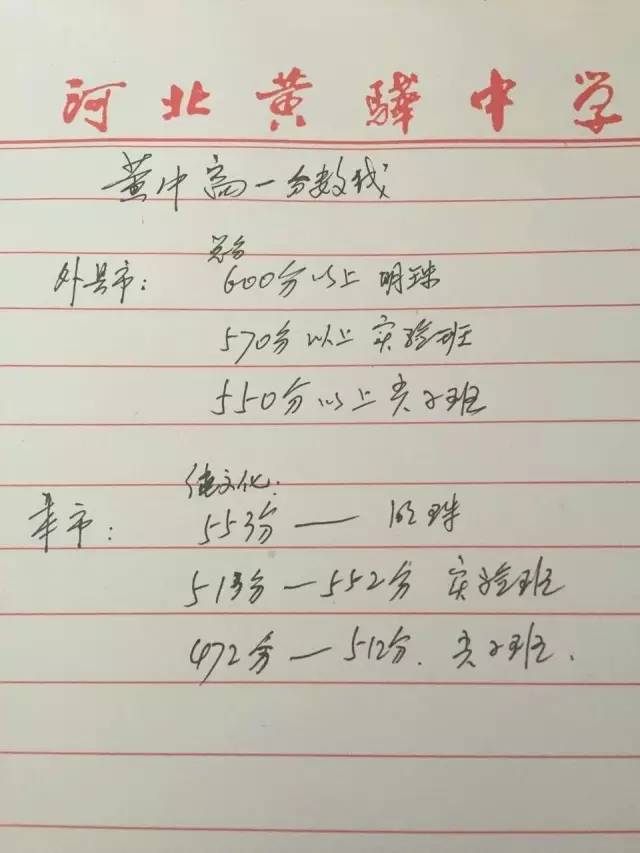 河北黄骅中学
黄中高一分数线
总分
外县市: 600分以上 明珠
570分以上 实验班
550分以上 尖子班
纯文化:
本市: 553分 — 明珠
513分 — 552分 实验班
472分 — 512分. 尖子班.